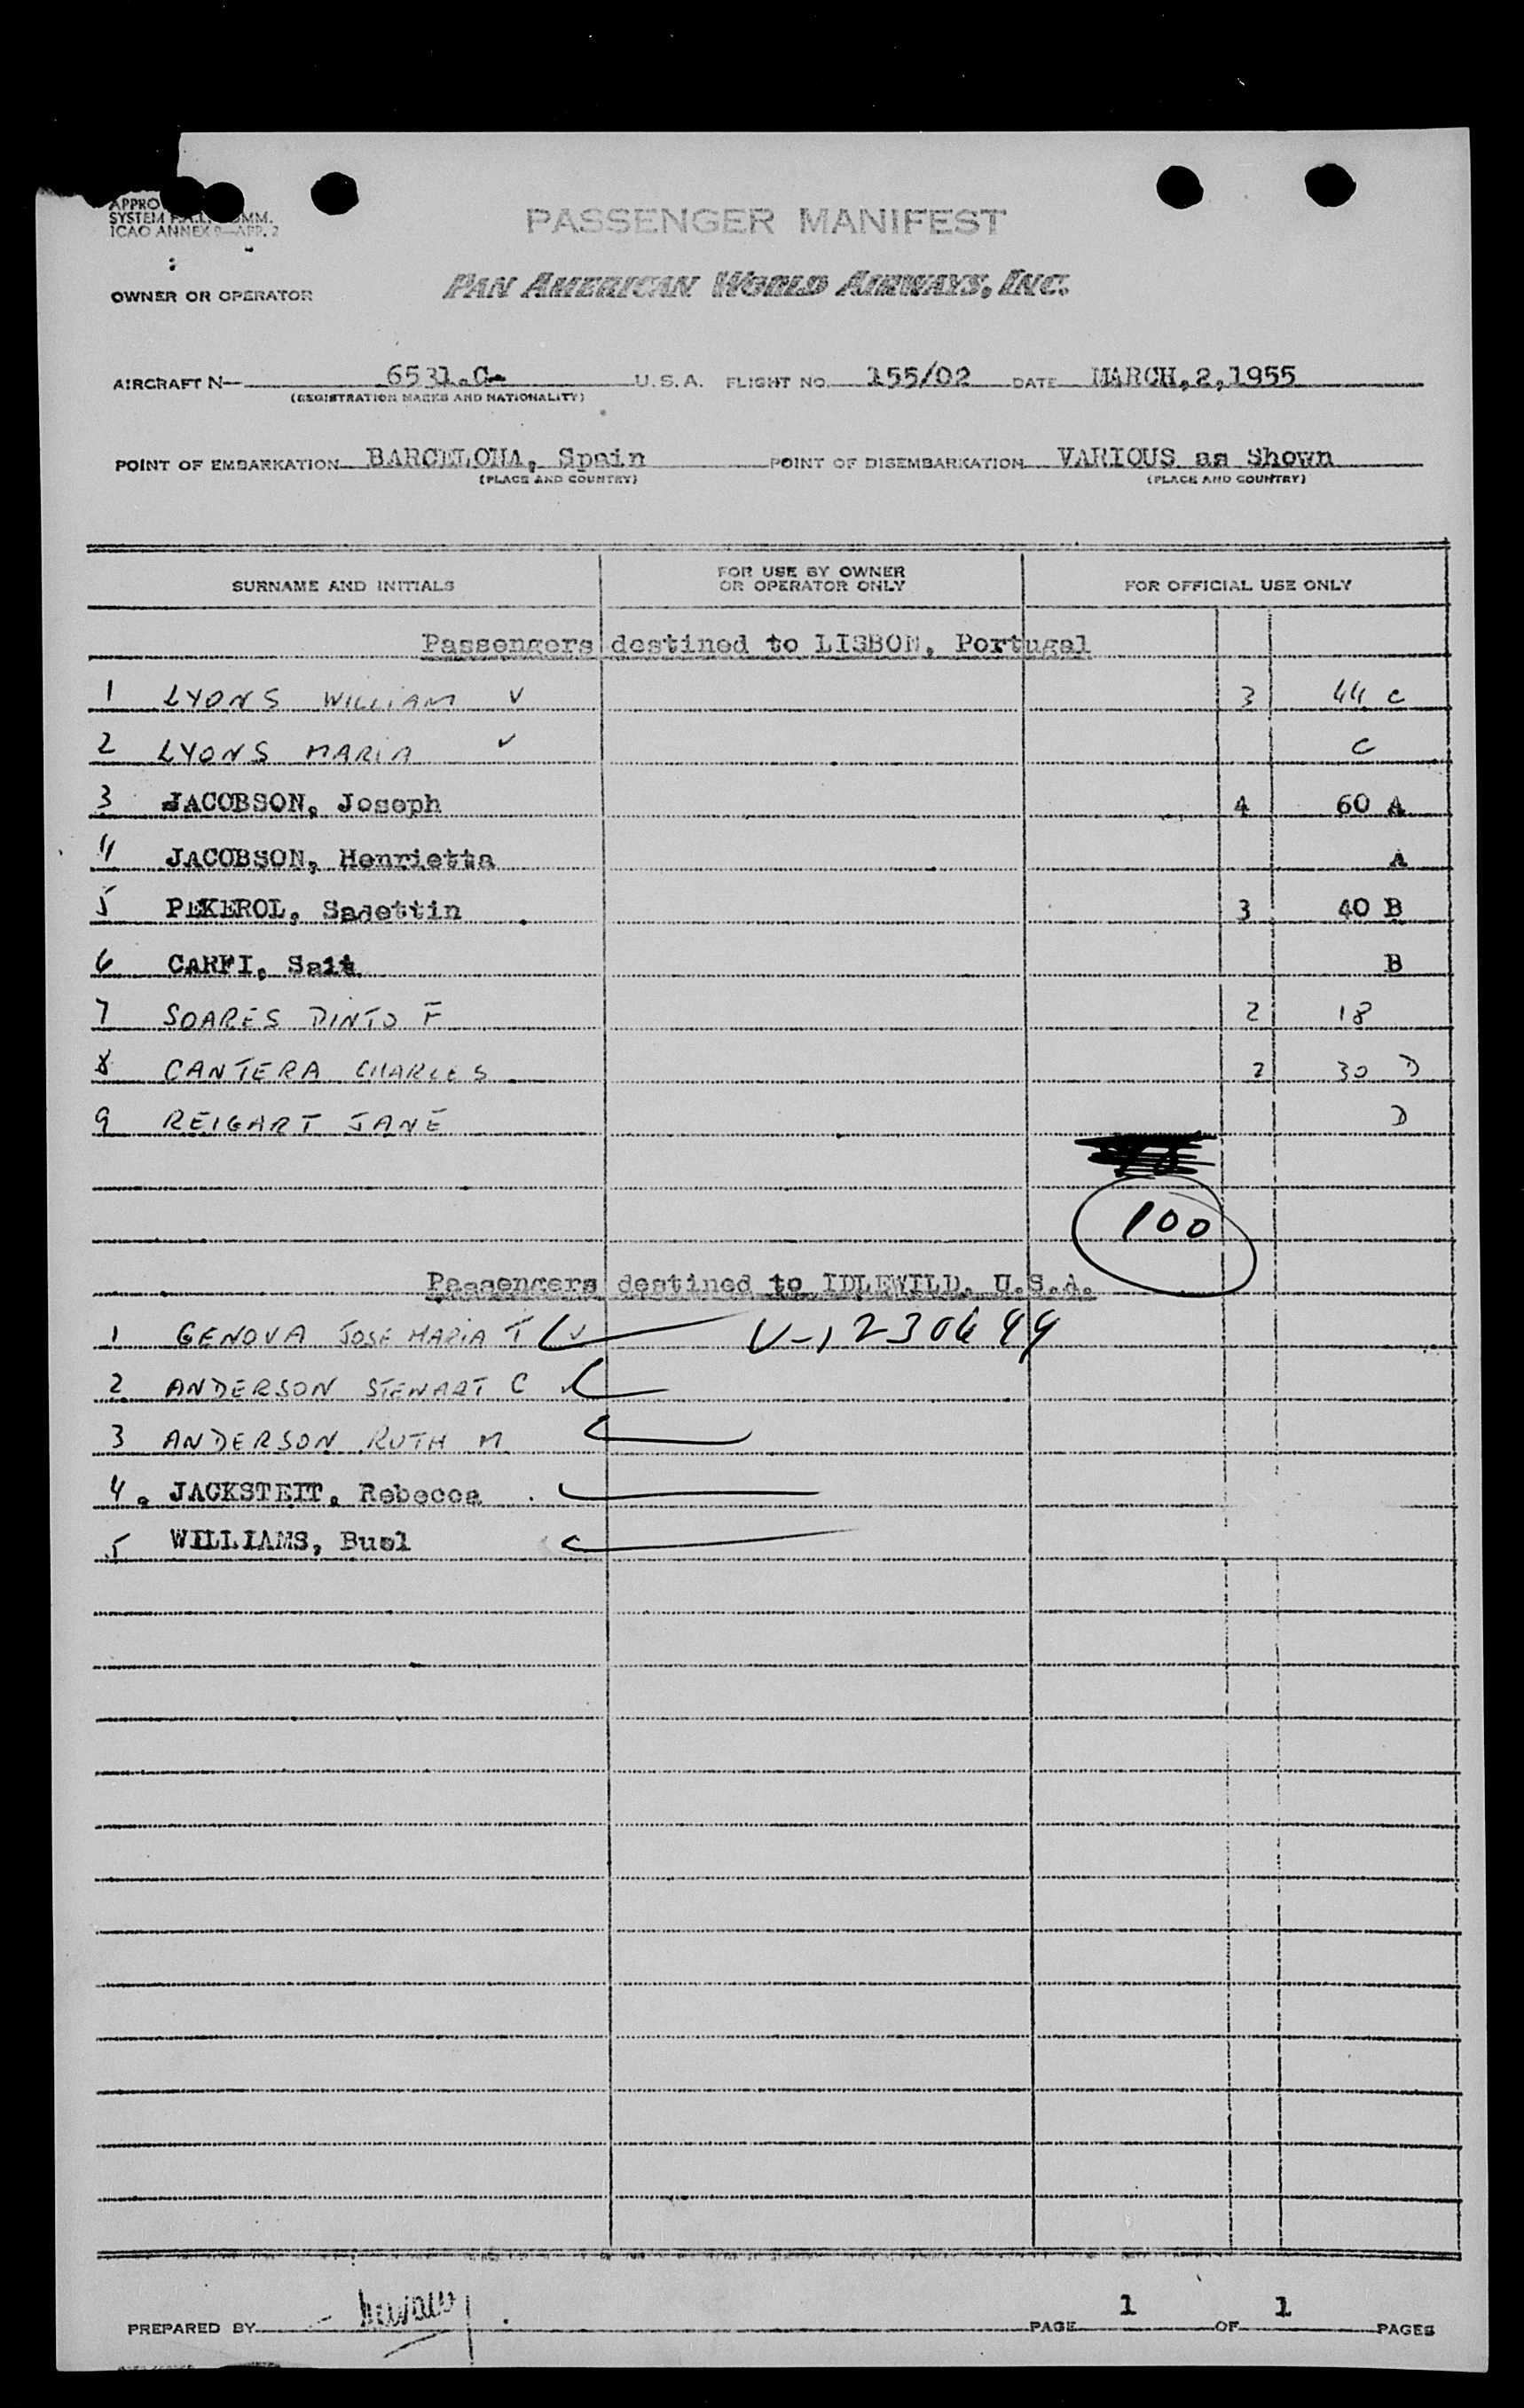 SYSTEM
ICAO ANNEX 9—APP. 2
PASSENGER MANIFEST
OWNER OR OPERATOR PAN AMERICAN WORLD AIRWAYS, INC.
AIRCRAFT N— 6531.C- U.S.A. FLIGHT NO. 155/02 DATE MARCH,2,1955
(REGISTRATION MARKS AND NATIONALITY)
POINT OF EMBARKATION BARCELONA, Spain POINT OF DISEMBARKATION VARIOUS as Shown
(PLACE AND COUNTRY) (PLACE AND COUNTRY)
SURNAME AND INITIALS FOR USE BY OWNER OR OPERATOR ONLY FOR OFFICIAL USE ONLY
Passengers destined to LISBON, Portugal
1 LYONS WILLIAM V 3 44 C
2 LYONS MARIA V C
3 JACOBSON, Joseph 4 60 A
4 JACOBSON, Henrietta A
5 PEKEROL, Sadettin 3 40 B
6 CARFI, Sait B
7 SOARES PINTO F 2 18
8 CANTERA CHARLES 2 30 D
9 REIGART JANE D
100
Passengers destined to IDLEWILD, U.S.A.
1 GENOVA JOSE MARIA T V-1230644
2 ANDERSON STEWART C
3 ANDERSON RUTH M
4. JACKSTEIT, Rebecca
5 WILLIAMS, Buel
PREPARED BY PAGE 1 OF 1 PAGES